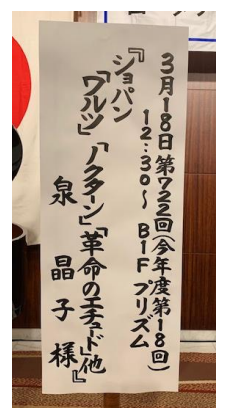 3月18日第722回(今年度第18回)
12:30〜 B1F プリズム
『ショパン
「ワルツ」「ノクターン」「革命のエチュード」他』
泉 晶子 様